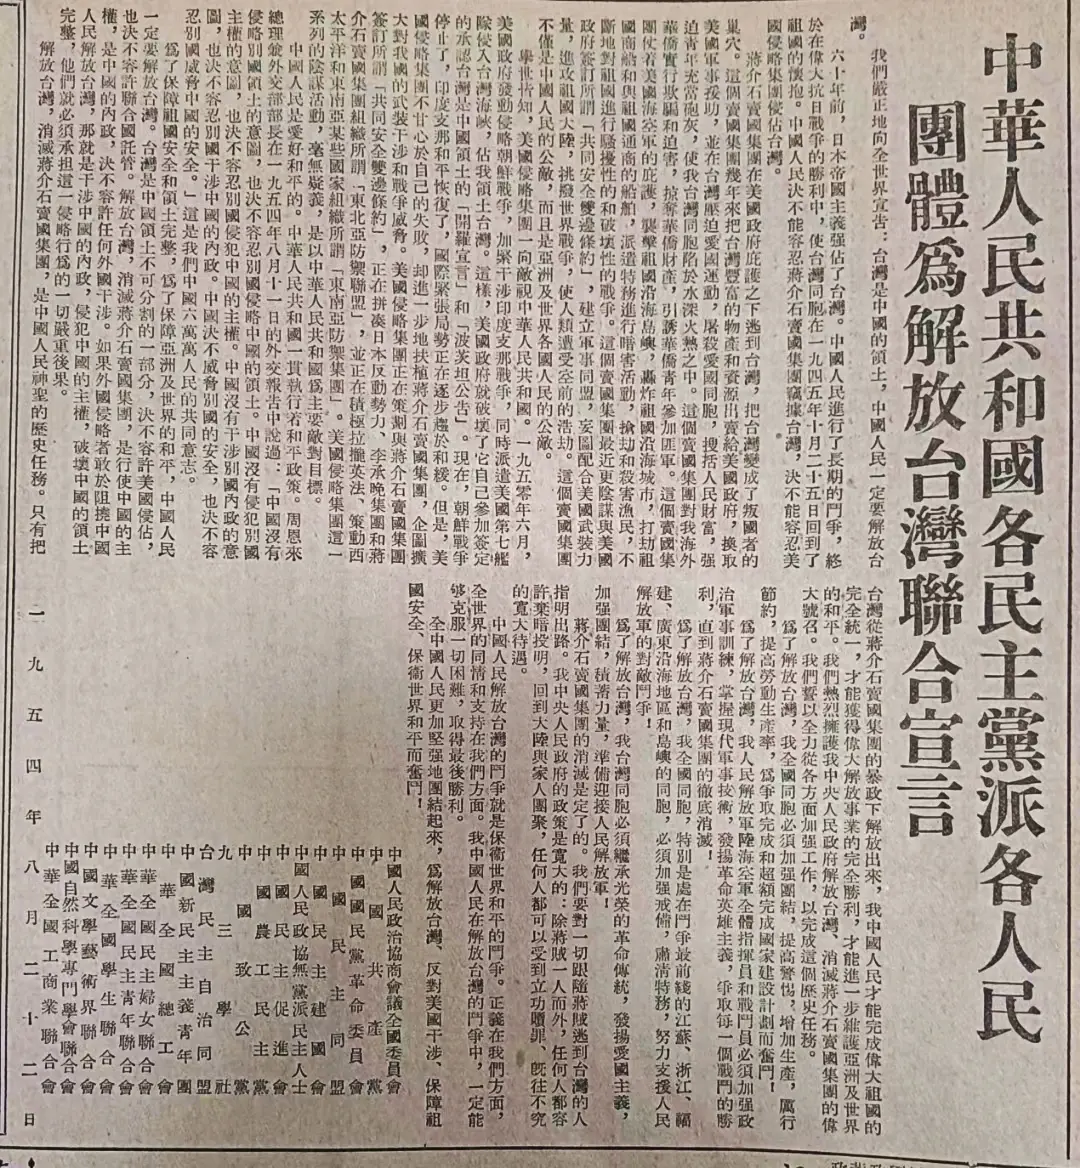 中華人民共和國各民主黨派各人民
團體爲解放台灣聯合宣言
我們嚴正地向全世界宣告：台灣是中國的領土，中國人民一定要解放台
灣。
六十年前，日本帝國主義强佔了台灣。中國人民進行了長期的鬥爭，終
於在偉大抗日戰爭的勝利中，使台灣同胞在一九四五年十月二十五日回到了
祖國的懷抱。中國人民決不能容忍蔣介石賣國集團竊據台灣，決不能容忍美
國侵略集團侵佔台灣。
蔣介石賣國集團在美國政府庇護之下逃到台灣，把台灣變成了叛國者的
巢穴。這個賣國集團幾年來把台灣豐富的物產和資源出賣給美國政府，換取
美國軍事援助，並在台灣壓迫愛國運動，屠殺愛國同胞，搜括人民財富，强
迫青年充當砲灰，使我台灣同胞陷於水深火熱之中。這個賣國集團對我海外
華僑實行欺騙和迫害，掠奪華僑財產，引誘華僑青年參加匪軍。這個賣國集
團仗着美國海空軍的庇護，襲擊祖國沿海島嶼，轟炸祖國沿海城市，打劫祖
國商船和與祖國通商的船舶，派遣特務進行暗害活動，搶劫和殺害漁民，不
斷地對祖國進行騷擾性的和破壞性的戰爭。這個賣國集團最近更陰謀與美國
政府簽訂所謂「共同安全雙邊條約」，建立軍事同盟，妄圖配合美國武裝力
量，進攻祖國大陸，挑撥世界戰爭，使人類遭受空前的浩劫。這個賣國集團
不僅是中國人民的公敵，而且是亞洲及世界各國人民的公敵。
舉世皆知，美國侵略集團一向敵視中華人民共和國。一九五零年六月，
美國政府發動侵略朝鮮戰爭，加緊干涉印度支那戰爭，同時派遣美國第七艦
隊侵入台灣海峽，佔我領土台灣。這樣，美國政府就破壞了它自己參加簽定
的承認台灣是中國領土的「開羅宣言」和「波茨坦公告」。現在，朝鮮戰爭
停止了，印度支那和平恢復了，國際緊張局勢正在逐步趨於和緩。但是，美
國侵略集團不甘心於自己的失敗，却進一步地扶植蔣介石賣國集團，企圖擴
大對我國的武裝干涉和戰爭威脅。美國侵略集團正在策劃與蔣介石賣國集團
簽訂所謂「共同安全雙邊條約」，正在拼凑日本反動勢力、李承晚集團和蔣
介石賣國集團組織所謂「東北亞防禦聯盟」，並正在積極拉攏英法、策動西
太平洋和東南亞某些國家組織所謂「東南亞防禦集團」。美國侵略集團這一
系列的陰謀活動，毫無疑義，是以中華人民共和國爲主要敵對目標。
中國人民是愛好和平的。中華人民共和國一貫執行着和平政策。周恩來
總理兼外交部長在一九五四年八月十一日的外交報告中說過：「中國沒有
侵略別國領土的意圖，也決不容忍別國侵略中國的領土。中國沒有侵犯別國
主權的意圖，也決不容忍別國侵犯中國的主權。中國沒有干涉別國內政的意
圖，也決不容忍別國干涉中國的內政。中國決不威脅別國的安全，也決不容
忍別國威脅中國的安全。」這是我們中國六萬萬人民的共同意志。
爲了保障祖國安全和領土完整，爲了保障亞洲及世界的和平，中國人民
一定要解放台灣。台灣是中國領土不可分割的一部分，決不容許美國侵佔，
也決不容許聯合國託管。解放台灣，消滅蔣介石賣國集團，是行使中國的主
權，是中國的內政，決不容許任何外國干涉。如果外國侵略者敢於阻撓中國
人民解放台灣，那就是干涉中國的內政，侵犯中國的主權，破壞中國的領土
完整，他們就必須承担這一侵略行爲的一切嚴重後果。
解放台灣，消滅蔣介石賣國集團，是中國人民神聖的歷史任務。只有把
台灣從蔣介石賣國集團的暴政下解放出來，我中國人民才能完成偉大祖國的
完全統一，才能獲得偉大解放事業的完全勝利，才能進一步維護亞洲及世界
的和平。我們熱烈擁護我中央人民政府解放台灣、消滅蔣介石賣國集團的偉
大號召。我們誓以全力從各方面加强工作，以完成這個歷史任務。
爲了解放台灣，我全國同胞必須加强團結，提高警惕，增加生產，厲行
節約，提高勞動生產率，爲爭取完成和超額完成國家建設計劃而奮鬥！
爲了解放台灣，我人民解放軍陸海空軍全體指揮員和戰鬥員必須加强政
治軍事訓練，掌握現代軍事技術，發揚革命英雄主義，爭取每一個戰鬥的勝
利，直到蔣介石賣國集團的徹底消滅！
爲了解放台灣，我全國同胞，特別是處在鬥爭最前綫的江蘇、浙江、福
建、廣東沿海地區和島嶼的同胞，必須加强戒備，肅清特務，努力支援人民
解放軍的對敵鬥爭！
爲了解放台灣，我台灣同胞必須繼承光榮的革命傳統，發揚愛國主義，
加强團結，積蓄力量，準備迎接人民解放軍！
蔣介石賣國集團的消滅是定了的。我們要對一切跟隨蔣賊逃到台灣的人
指明出路。我中央人民政府的政策是寬大的：除蔣賊一人而外，任何人都容
許棄暗投明，回到大陸與家人團聚，任何人都可以受到立功贖罪、既往不究
的寬大待遇。
中國人民解放台灣的鬥爭就是保衞世界和平的鬥爭。正義在我們方面，
全世界的同情和支持在我們方面。我中國人民在解放台灣的鬥爭中，一定能
够克服一切困難，取得最後勝利。
全中國人民更加堅强地團結起來，爲解放台灣、反對美國干涉、保障祖
國安全、保衞世界和平而奮鬥！
中國人民政治協商會議全國委員會
中國共產黨
中國國民黨革命委員會
中國民主同盟
中國民主建國會
中國人民政協無黨派民主人士
中國民主促進會
中國農工民主黨
中國致公黨
九三學社
台灣民主自治同盟
中國新民主主義青年團
中華全國總工會
中華全國民主婦女聯合會
中華全國民主青年聯合會
中華全國學生聯合會
中國文學藝術界聯合會
中國自然科學專門學會聯合會
中華全國工商業聯合會
一九五四年八月二十二日